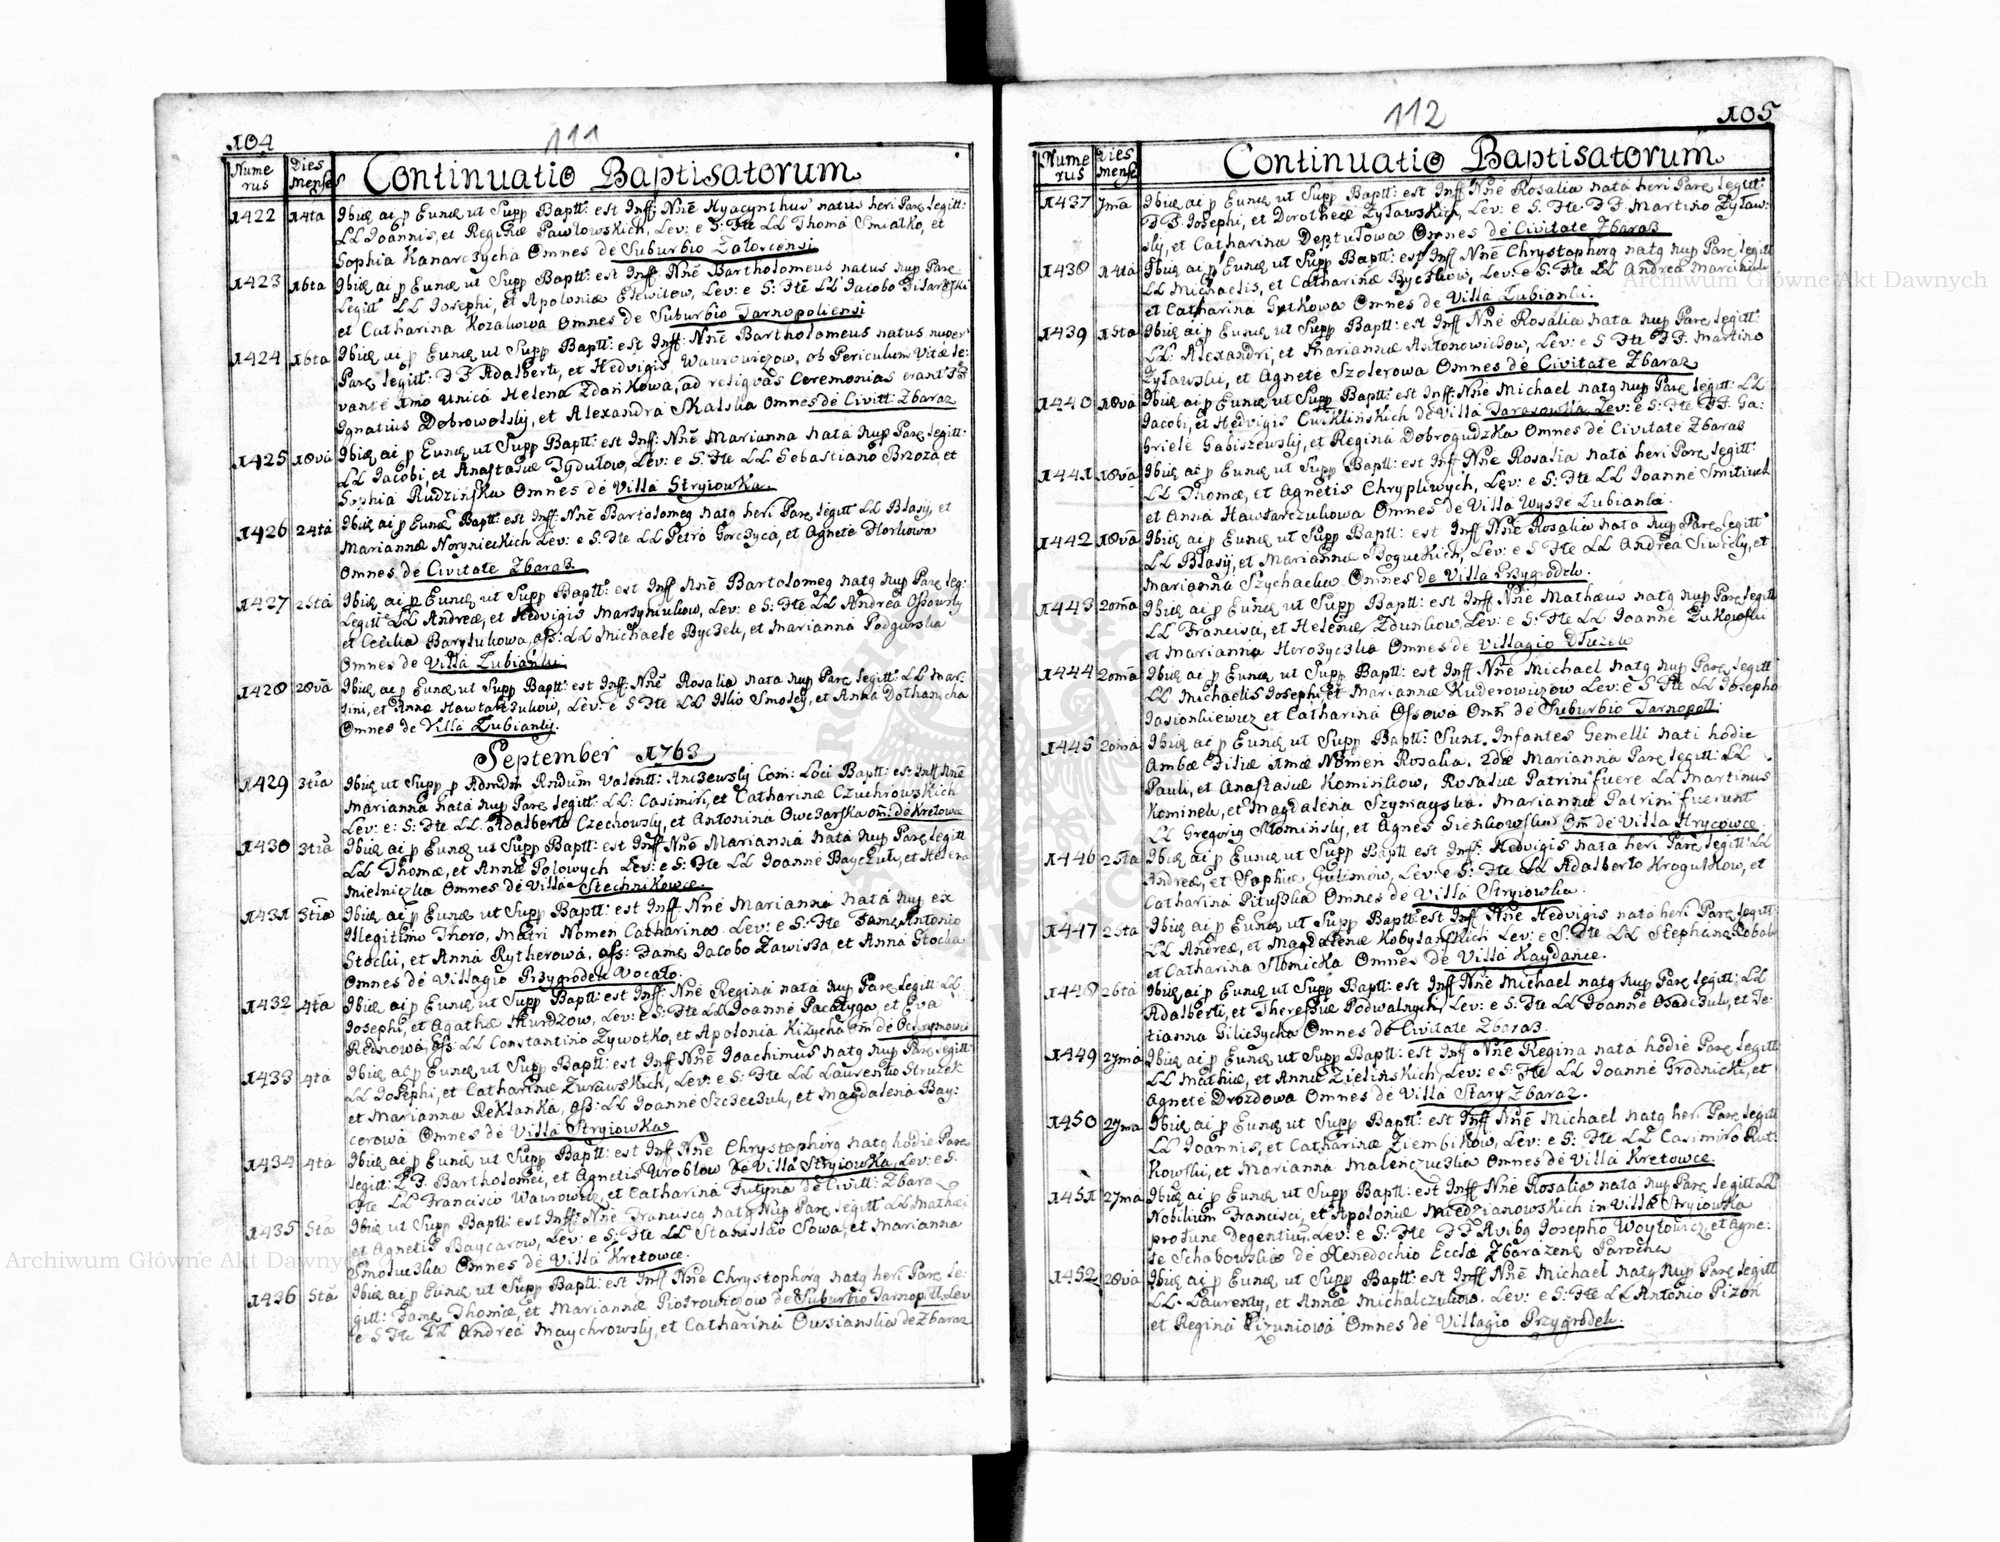 104
111
Numerus
Dies Mensis
Continuatio Baptisatorum
1422 14ta Ibid ai p Eund ut Supp Baptt: est Inff: Nnē Hyacynthus natus heri Par legitt:
LL Joannis, et Reginæ Pawlowskich, Lev: e S: Fte LL Thoma Smialko, et
Sophia Kanarczycha Omnes de Suburbio Zaloscensi
1423 16ta Ibid ai p Eund ut Supp Baptt: est Inff: Nnē Bartholomeus natus nup Par
Legitt LL Josephi, et Apoloniæ Lev: e S: Fte LL Jacobo
et Catharina Kozakowa Omnes de Suburbio Tarnopoliensi
1424 16ta Ibid ai p Eund ut Supp Baptt: est Inff: Nnē Bartholomeus natus nuper
Par legitt: FF Adalberti, et Hedvigis Waurowiczow, ob Periculum Vitæ le:
vante Imo Unica Helena Zdańkowa, ad reliquas Ceremonias erant FF
Ignatius Dobrowolsky, et Alexandra Skalska Omnes de Civitt: Zbaraz
1425 18va Ibid ai p Eund ut Supp Baptt: est Inff: Nnē Marianna nata nup Par legitt:
LL Jacobi, et Anastasiæ Dydulow, Lev: e S: Fte LL Sebastiano Brzoza, et
Sophia Rudzińska Omnes de Villa Stryiowka.
1426 24ta Ibid ai p Eund Baptt: est Inff: Nnē Bartolomeg natg heri Par legitt LL Blasij, et
Mariannæ Noryniechich Lev: e S: Fte LL Petro Gorczyca, et Agnete Horkowa
Omnes de Civitate Zbaraz
1427 25ta Ibid ai p Eund ut Supp Baptt: est Inff Nnē Bartolomeg natg nup Par leg:
Legitt LL Andreæ, et Hedvigis Martyniukow, Lev: e S: Fte LL Andrea Ossowsky
et Cecilia Barytukowa, ass: LL Michaele Byczek, et Marianna Podgurska
Omnes de Villa Lubianki
1428 28va Ibid ai p Eund ut Supp Baptt: est Inff: Nnē Rosalia nata nup Par legitt: LL Mar:
tini, et Annæ Hawtarczukow, Lev: e S Fte LL Illio Smoley, et Anna Dothanicha
Omnes de Villa Lubianky.
September 1763
1429 3tia Ibid ut Supp p Admdm Rndum Valentt: Anczewsky Com: Loci Baptt: est Inff Nnē
Marianna nata nup Par legitt: LL: Casimiri, et Catharinæ Czuchrowskich
Lev: e: S: Fte LL: Adalberto Czechowsky, et Antonina Owczarska om: de Kretowce
1430 3tia Ibid ai p Eund ut Supp Baptt: est Inff Nnē Marianna nata nup Par legitt
LL Thomæ, et Annæ Polowych Lev: e S: Fte LL Joanne Bayczuk, et Helena
Mielniczka Omnes de Villa Stechnikowce.
1431 3tia Ibid ai p Eund ut Supp Baptt: est Inff: Nnē Marianna nata nup ex
Illegitimo Thoro, Matri Nomen Catharinæ. Lev: e S: Fte Fam Antonio
Stocki, et Anna Rytherowa, ass: Fam Jacobo Zawisza, et Anna Stocka
Omnes de Villagio Przygrodek Vocato.
1432 4ta Ibid ai p Eund ut Supp Baptt: est Inff: Nnē Regina nata nup Par legitt LL
Josephi, et Agathæ Hurdzow, Lev: e S: Fte LL Joanne Pacałyga, et Eva
Rednowa, ass: LL Constantino Zywotko, et Apolonia Kizycha om de
1433 4ta Ibid ai p Eund ut Supp Baptt: est Inff Nnē Joachimus natg nup Par legitt
LL Josephi, et Catharinæ Zurawskich, Lev: e S: Fte LL Laurentio Struzek
et Marianna Reklanka, ass: LL Joanne Szczeczuk, et Magdalena Bay:
cerowa Omnes de Villa Stryiowka
1434 4ta Ibid ai p Eund ut Supp Baptt: est Inff Nnē Chrystophorg natg hodie Par
legitt: FF. Bartholomei, et Agnetis Wroblow de Villa Stryiowka, Lev: e S.
Fte LL Francisco Waurowicz, et Catharina Futyna de Civitt: Zbaraz
1435 5ta Ibid ut Supp Baptt: est Inff: Nnē Franciscg natg Nup Par legitt LL Mathæi
et Agnetis Baycarow, Lev: e S: Fte LL Stanislao Sowa, et Marianna
Smoluszka Omnes de Villa Kretowce.
1436 5ta Ibid ai p Eund ut Supp Baptt: est Inff Nnē Chrystophorg natg heri Par le:
gitt: Fam Thomæ, et Mariannæ Piotrowiczow de Suburbio Tarnopoll, Lev
e S Fte LL Andrea Maychrowsky, et Catharina Owsianska de Zbaraz
112
105
Numerus
Dies Mensis
Continuatio Baptisatorum
1437 7ma Ibid ai p Eund ut Supp Baptt: est Inff Nnē Rosalia nata heri Par legitt:
FF. Josephi, et Dorotheæ Zyławskich, Lev: e S. Fte FF Martino Zyław:
sky, et Catharina Deptułowa Omnes de Civitate Zbaraz
1438 14ta Ibid ai p Eund ut Supp Baptt: est Inff Nnē Chrystophorg natg nup Par legitt
LL Michaelis, et Catharinæ Byczkow, Lev: e S: Fte LL Andrea Marciniuk
et Catharina Omnes de Villa Lubianki.
1439 15ta Ibid ai p Eund ut Supp Baptt: est Inff Nnē Rosalia nata nup Par legitt:
LL: Alexandri, et Mariannæ Antonowiczow, Lev: e S Fte FF. Martino
Zyławski, et Agnete Szolerowa Omnes de Civitate Zbaraz
1440 18va Ibid ai p Eund ut Supp Baptt: est Inff: Nnē Michael natg nup Par legitt: LL
Jacobi, et Hedvigis Cwiklińskich de Villa Tarasowka Lev: e S: Fte FF. Ga:
briele Gabiszewsky, et Regina Dobrogudzka Omnes de Civitate Zbaraz
1441 18va Ibid ai p Eund ut Supp Baptt: est Inff Nnē Rosalia nata heri Par legitt:
LL Thomæ, et Agnetis Chrypliwych, Lev: e S: Fte LL Joanne Smitiuch
et Anna Hawtarczukowa Omnes de Villa Wysze Lubianki.
1442 18va Ibid ai p Eund ut Supp Baptt: est Inff Nnē Rosalia nata nup Par legitt
LL Blasij, et Mariannæ Boguckich, Lev: e S Fte LL Andrea Siwicky, et
Marianna Szychaela Omnes de Villa Przygrodek.
1443 20ma Ibid ai p Eund ut Supp Baptt: est Inff Nnē Mathæus natg nup Par legitt
LL Francisci, et Helenæ Zdunkow, Lev: e S: Fte LL Joanne Zukowski
et Marianna Herozyczka Omnes de Villagio Dłuzek
1444 20ma Ibid ai p Eund ut Supp Baptt: est Inff Nnē Michael natg nup Par legitt
LL Michaelis Josephi, et Mariannæ Kuderowiczow Lev: e S Fte LL Josepho
Jasionkiewicz et Catharina Ossowa Om de Suburbio Tarnopoll:
1445 20ma Ibid ai p Eund ut Supp Baptt: Sunt. Infantes Gemelli nati hodie
Ambæ Filiæ 1mæ Nomen Rosalia. 2dæ Marianna Par legitt: LL
Pauli, et Anastasiæ Kominkow, Rosaliæ Patrini fuere LL Martinus
Kominek, et Magdalena Szymayska. Mariannæ Patrini fuerunt
LL Gregorig Słominsky, et Agnes Sieńkowska Om de Villa Hrycowce.
1446 25ta Ibid ai p Eund ut Supp Baptt est Inff: Hedvigis nata heri Par legitt: LL
Andreæ, et Sophiæ Gulimow, Lev: e S: Fte LL Adalberto Krogulkow, et
Catharina Pituszka Omnes de Villa Stryiowka.
1447 25ta Ibid ai p Eund ut Supp Baptt: est Inff Nnē Hedvigis nata heri Par legitt:
LL Andreæ, et Magdalenæ Kobylańskich Lev: e S: Fte LL Stephano
et Catharina Słomicka Omnes de Villa Kaydance.
1448 26ta Ibid ai p Eund ut Supp Baptt: est Inff Nnē Michael natg nup Par legitt: LL
Adalberti, et Theresiæ Podwalnych, Lev: e S: Fte LL Joanne Osadczuk, et Te:
tianna Giliczycha Omnes de Civitate Zbaraz.
1449 27ma Ibid ai p Eund ut Supp Baptt: est Inff Nnē Regina nata hodie Par legitt
LL Mathiæ, et Annæ Zielińskich, Lev: e S: Fte LL Joanne Grodnicki, et
Agnete Drozdowa Omnes de Villa Stary Zbaraz.
1450 27ma Ibid ai p Eund ut Supp Baptt: est Inff Nnē Michael natg heri Par legitt
LL Joannis, et Catharinæ Ziembikow, Lev: e S: Fte LL Casimiro Rut:
kowski, et Marianna Maleńczuszka Omnes de Villa Kretowce.
1451 27ma Ibid ai p Eund ut Supp Baptt: est Inff Nnē Rosalia nata nup Par legitt LL
Nobilium Francisci, et Apoloniæ Miedzianowskich in Villa Stryiowka
pro tunc Degentiu, Lev: e S: Fte FF Avibg Josepho Woytowicz, et Agne:
te Schabowska de Xenodochio Eccła Zbarazen Parocha
1452 28va Ibid ai p Eund ut Supp Baptt: est Inff Nnē Michael natg Nup Par legitt
LL. Laurenty, et Annæ Michalczukow. Lev: e S: Fte LL Antonio Pizon
et Regina Pizuniowa Omnes de Villagio Przygrodek.
Archiwum Główne Akt Dawnych
Archiwum Główne Akt Dawnych